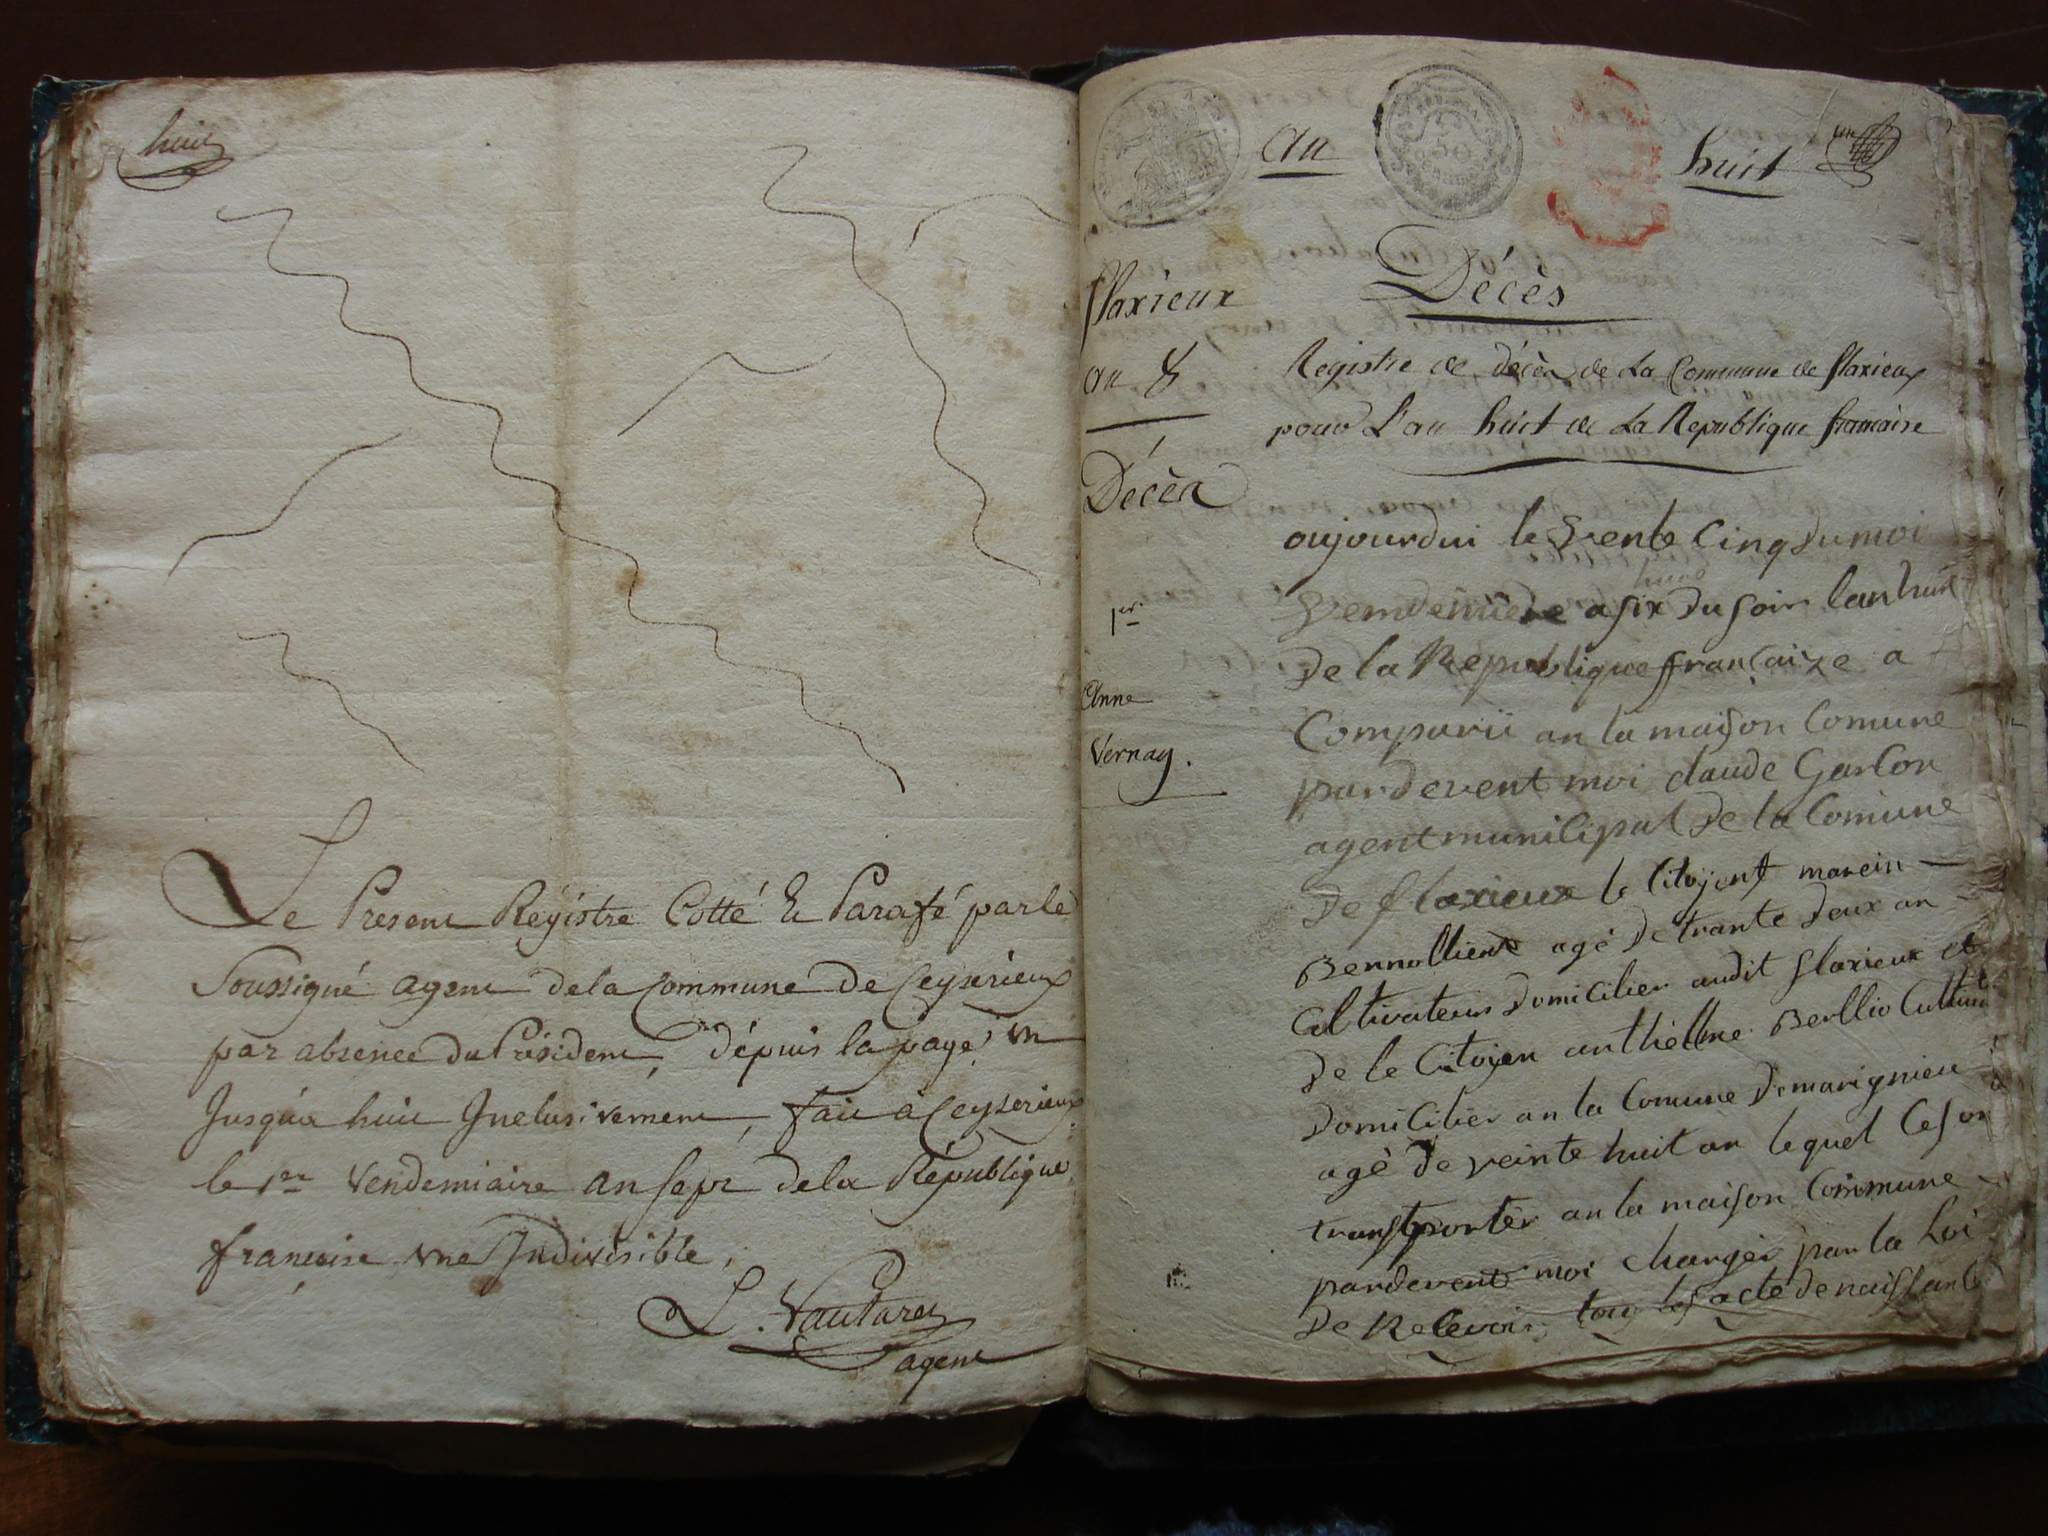 huit
Le Present Régistre Cotté Et Parafé par le
Soussigné agent de la Commune de Ceyserieux
par absence Du Président, dépuis la page un
Jusqu'a huit Inclusivement, fait à Ceyserieux
le 1er Vendemiaire an sept de la République
francaise une Indivisible,
agent
an huit
un
flaxieux
an 8
Décès
Décès
Registre de décès de La Commune de flaxieux
pour L'an huit de La Republique francaise
1er
Anne
Vernay.
aujourdui le vente Cinq du moi
hure
Vendemiere a six du soir lan huit
De la Republique françaize a
Comparü an la maison Comune
pardevent moi claude Garlon
agent municipal De la Comune
De flaxieux le Citoyent marein
Bennollient agé De trante Deux an
Cultivateur Domicilier audit flaxieux et
De le Citoyen anthelme Berllio Cultivat
Domicilier an la Comune De marignieu
agé De veinte huit an lequel Ceson
transporter an la maison Commune
pardevent moi chargér par la Loi
De Relevoir tous les acte De naissance